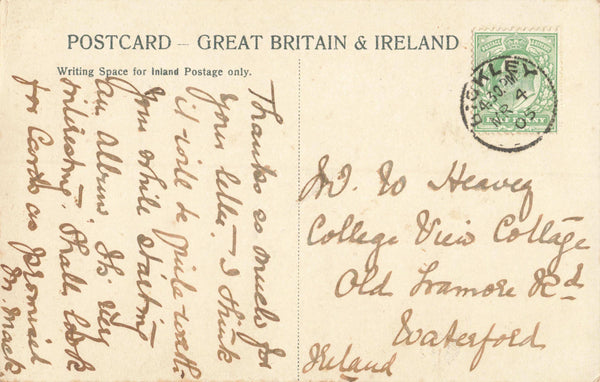 POSTCARD – GREAT BRITAIN & IRELAND
Writing Space for Inland Postage only.
Thanks so much for
your letter – I think
it will be quite worth
your while starting
an album. It's very
interesting. Shall look
for Cards as promised
M. Mack
BICKLEY
4.30 PM
MR 4
POSTAGE
HALFPENNY
W. Heavey
College View Cottage
Old Tramore Rd
Waterford
Ireland